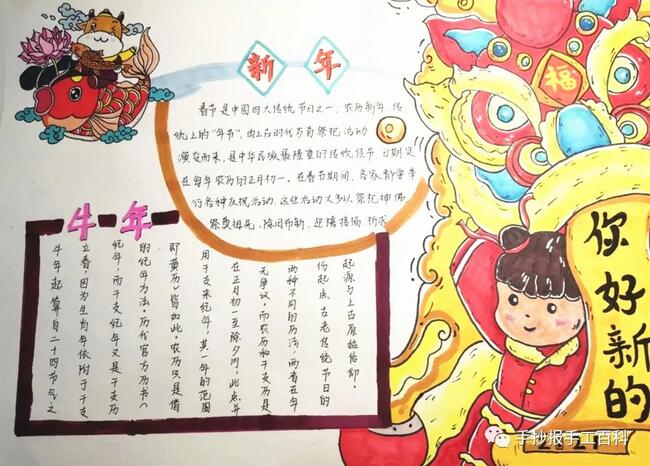 新年
福
春节是中国四大传统节日之一，农历新年，传
统上的“年节”，由上古时代岁首祭祀活动
演变而来，是中华民族最隆重的传统佳节，日期定
在每年农历的正月初一。在春节期间，各家都要举
行各种庆祝活动，这些活动大多以祭祀神佛
祭奠祖先、除旧布新、迎禧接福、祈求
牛年
牛年起算自二十四节气之
立春，因为生肖年依附于干支
纪年，而干支纪年又是干支历
的纪年方法。历代官方历书（
即黄历）皆如此。农历只是借
用干支来纪年，其一年的范围
在正月初一至除夕内，此点并
无争议，而农历和干支历是
两种不同的历法，两者在年
份起底，古老传统节日的
起源与上古原始信仰，
你好新的
2021
手抄报手工百科